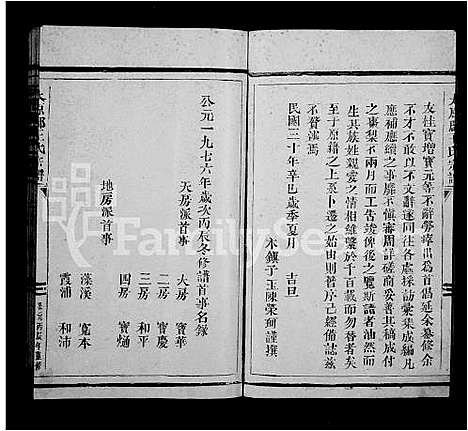 友桂寶增寶元等不辭勞瘁出爲首倡延余纂修余
不才不敢以不文辭遂同往各處採訪彙集成編凡
應補應續之事靡不愼審周詳磋商妥善其稿成付
之棗梨不兩月而工吿竣俾後之覽斯譜者油然而
生其族姓之相維繫於千百載而勿替焉
至于原流本末已卜遷之始由則前序已經備誌茲
不贅溪焉
民國三十年辛巳歲季夏月 吉旦
木鎮子玉陳榮珂謹撰
公元一九七六年歲次丙辰冬修譜首事名錄
天房派首事
大房 寶華
二房 寶慶
三房 和平
四房 寶熥
地房派首事
藻溪 寬本
霞浦 和沛